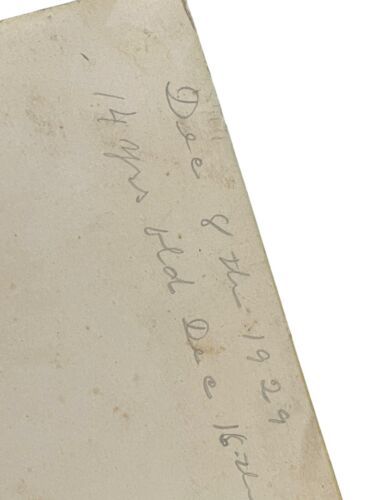 Dec 8th 1929
14 yrs old Dec 16th